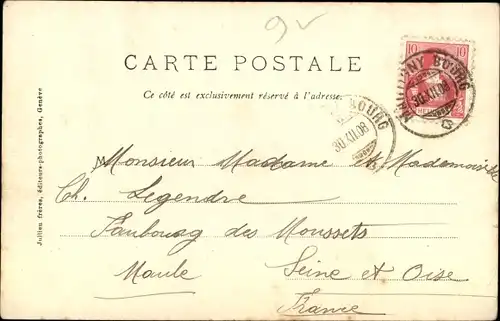 9
10 10
CARTE POSTALE
MARTIGNY BOURG
30.XII.08
HELVETIA
Ce côté est exclusivement réservé à l'adresse.
BOURG
30.XII.08
Jullien frères, éditeurs-photographes, Genève
M Monsieur Madame et Mademoiselle
Ch. Legendre
Faubourg des Moussets
Maule Seine et Oise
France